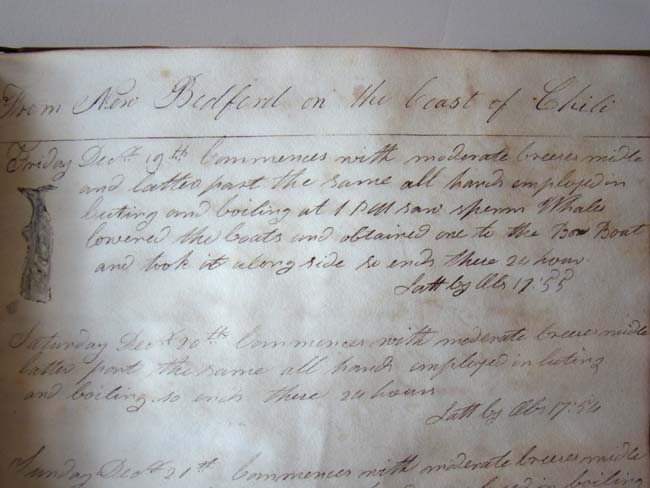 From New Bedford on the Coast of Chili
Friday Decm 19th Commences with moderate breeses midle
and latter part the same all hands employed in
cuting and boiling at 1 PM saw sperm Whales
lowered the boats and obtained one to the Bow Boat
and took it along side so ends these 24 hour
Latt by Obs 17:55
Saturday Decm 20th Commences with moderate breeses midle
latter part the same all hands employed in cuting
and boiling so ends these 24 hours
Latt by Obs 17:54
Sunday Decm 21th Commences with moderate breeses midle
in boiling